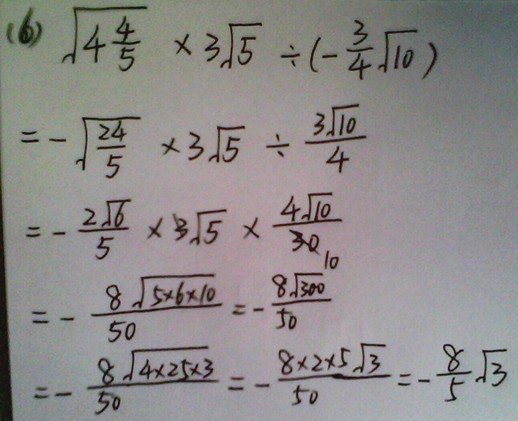 (6) √(4 4/5) × 3√5 ÷ (-3/4 √10)
= -√(24/5) × 3√5 ÷ 3√10/4
= -2√6/5 × 3√5 × 4√10/30 10
= -8√(5×6×10)/50 = -8√300/50
= -8√(4×25×3)/50 = -8×2×5√3/50 = -8/5 √3